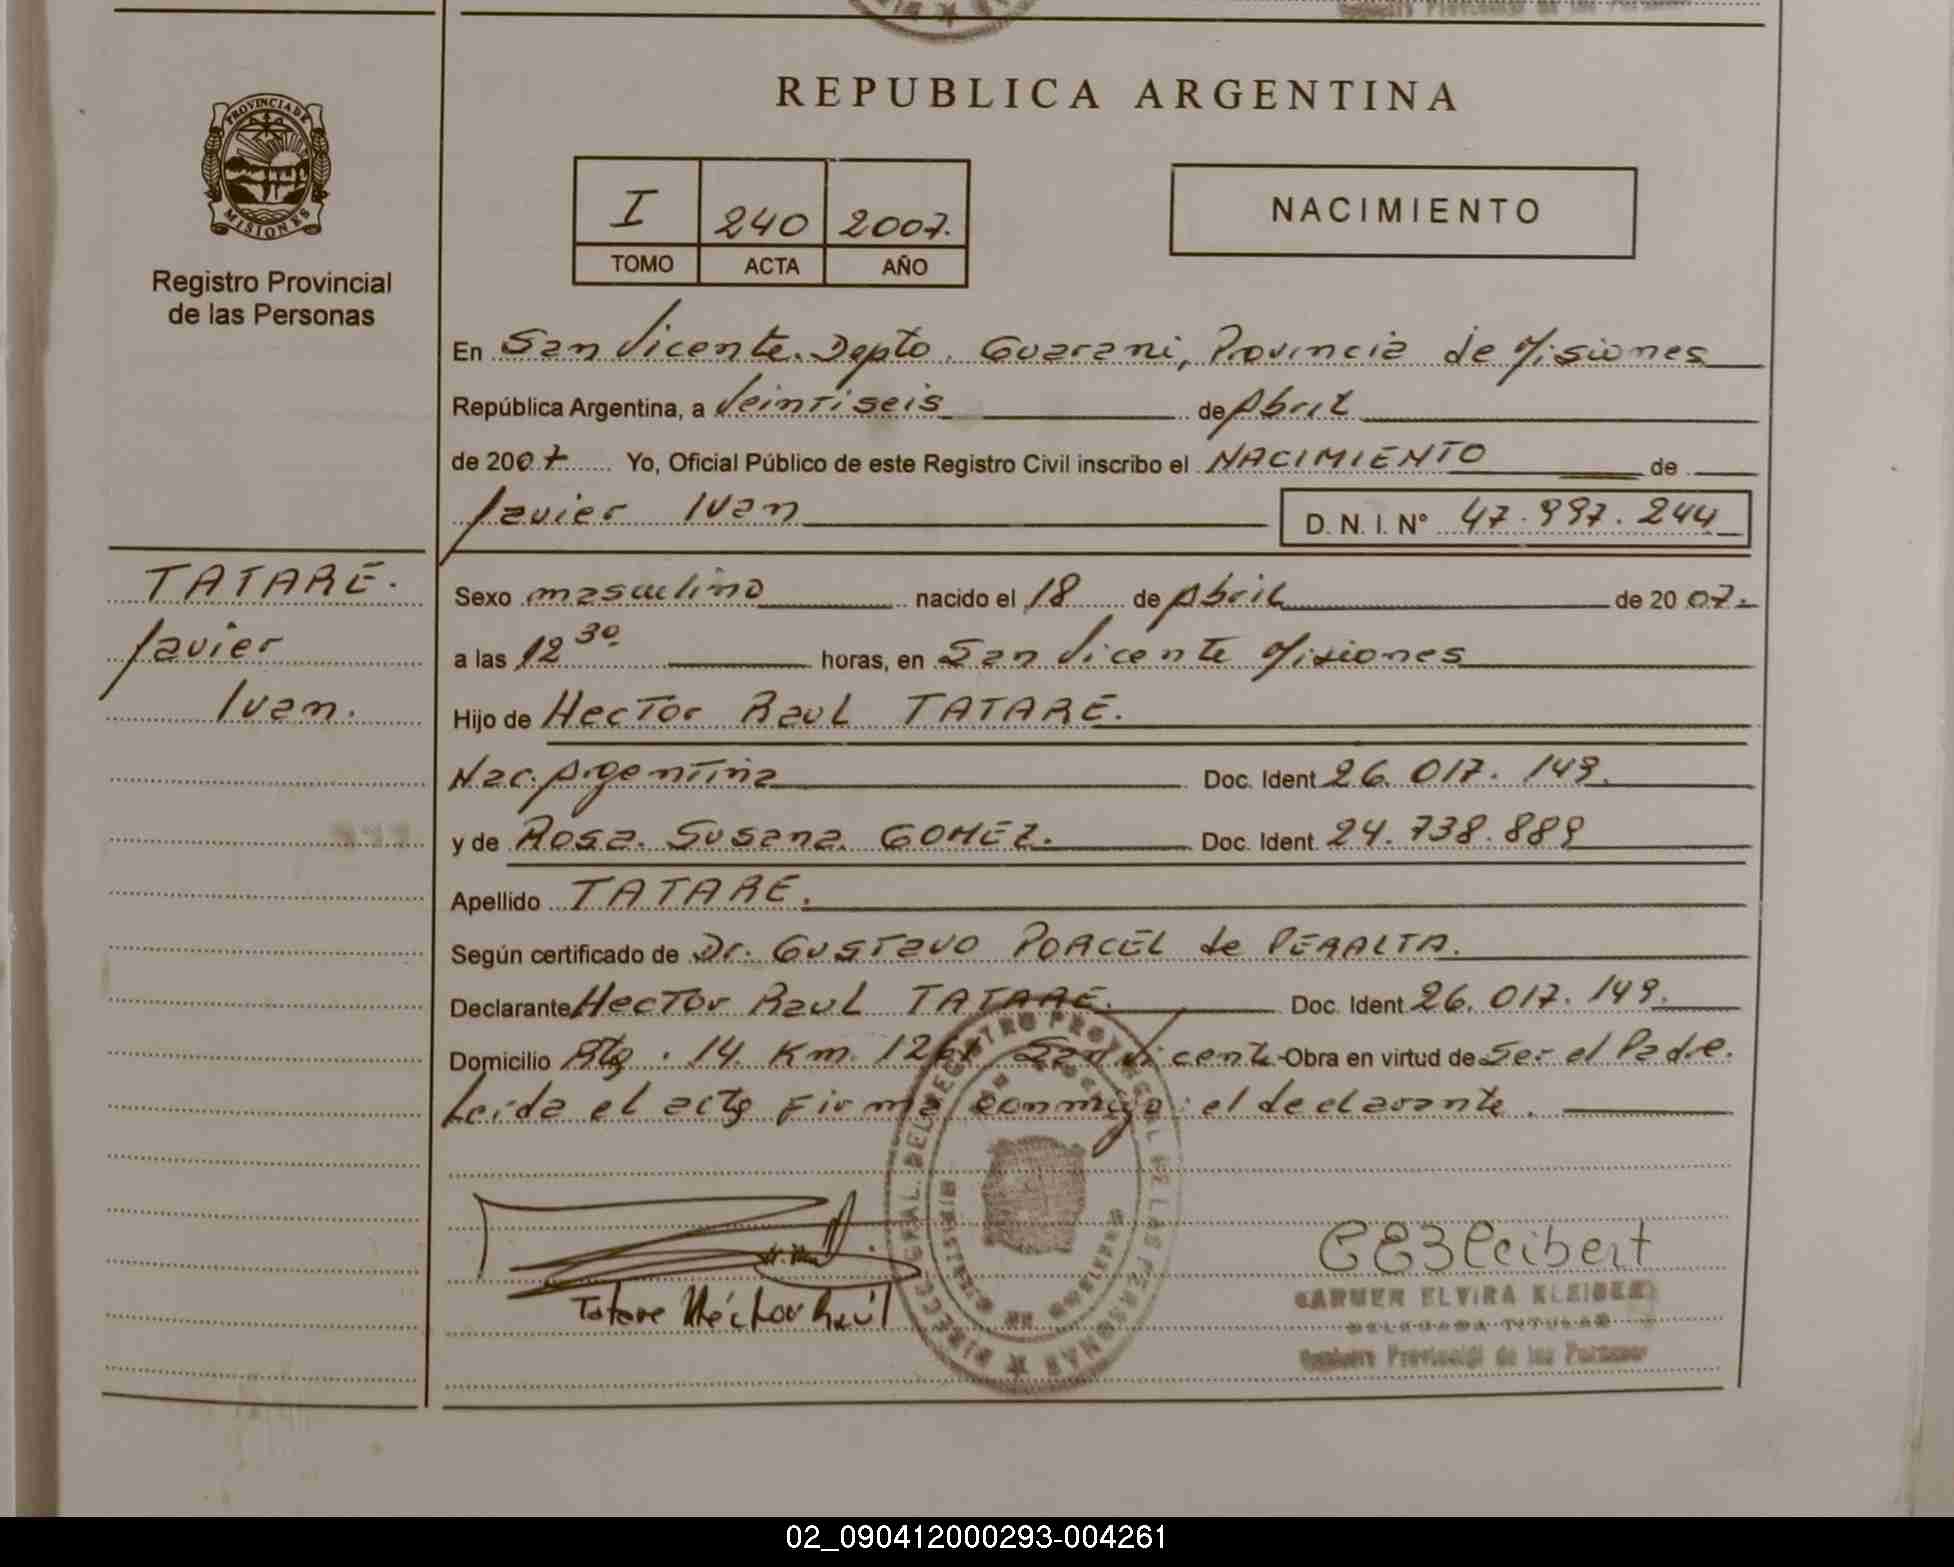 REPUBLICA ARGENTINA
PROVINCIA DE
MISIONES
Registro Provincial
de las Personas
I 240 2007.
TOMO ACTA AÑO
NACIMIENTO
En San Vicente. Depto. Guarani, Provincia de Misiones
República Argentina, a Veintiseis de Abril
de 2007 Yo, Oficial Público de este Registro Civil inscribo el NACIMIENTO de
Javier Ivan D. N. I. N° 47.997.244
TATARE.
Javier
Ivan.
Sexo masculino nacido el 18 de Abril de 2007.
a las 12 30 horas, en San Vicente Misiones
Hijo de Hector Raul TATARE.
Nac. Argentina Doc. Ident 26.017.149.
y de Rosa Susana GOMEZ. Doc. Ident. 24.738.889
Apellido TATARE.
Según certificado de Dr. Gustavo PORCEL de PERALTA.
Declarante Hector Raul TATARE. Doc. Ident 26.017.149.
Domicilio Rta. 14 Km. San Vicente Obra en virtud de Ser el Padre.
Leida el acta Firma conmigo: el declarante.
Tatare Héctor Raúl
DIRECC. GRAL. DEL REGISTRO PROVINCIAL DE LAS PERSONAS
CARMEN ELVIRA
DELEGADA TITULAR
Registro Provincial de las Personas
02_090412000293-004261